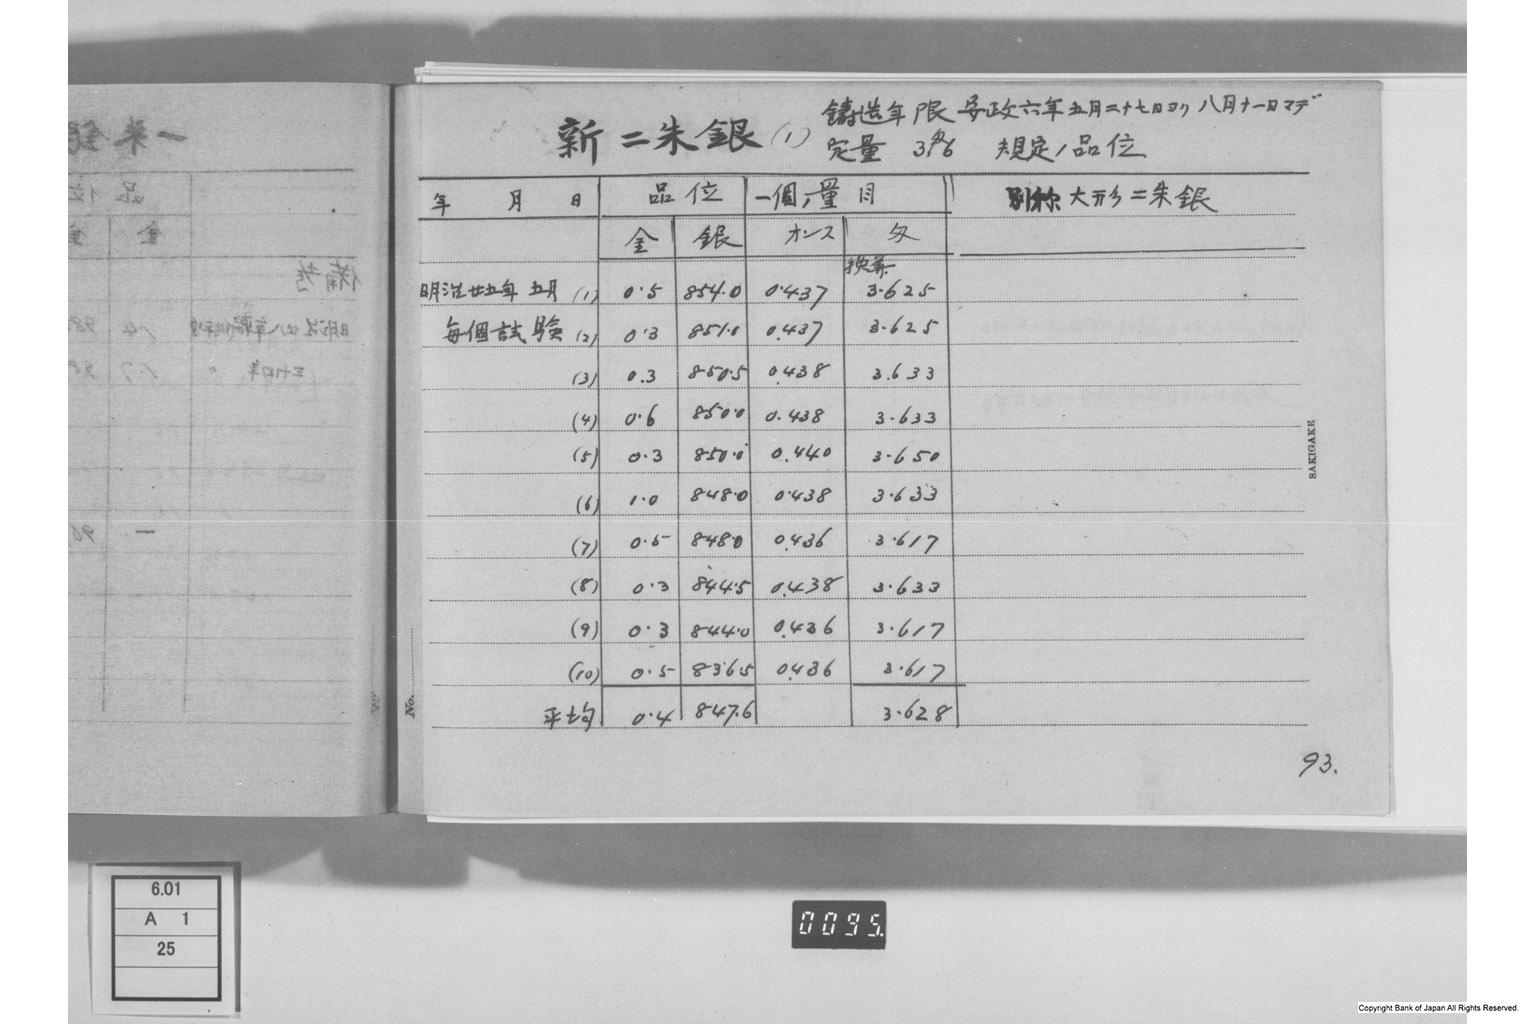 新二朱銀(1)
鋳造年限 安政六年五月二十七日ヨリ八月十一日マデ
定量 3匁6 規定ノ品位
年 月 日 品位 一個ノ量目 別称 大形二朱銀
金 銀 オンス 匁
換算
明治廿五年 五月 (1) 0.5 854.0 0.437 3.625
毎個試験 (2) 0.3 851.0 0.437 3.625
(3) 0.3 850.5 0.438 3.633
(4) 0.6 850.0 0.438 3.633
(5) 0.3 850.0 0.440 3.650
(6) 1.0 848.0 0.438 3.633
(7) 0.5 848.0 0.436 3.617
(8) 0.3 844.5 0.438 3.633
(9) 0.3 844.0 0.436 3.617
(10) 0.5 836.5 0.436 3.617
平均 0.4 847.6 3.628
No.
SAKIGAKE
93.
6.01
A 1
25
0095.
Copyright Bank of Japan All Rights Reserved.